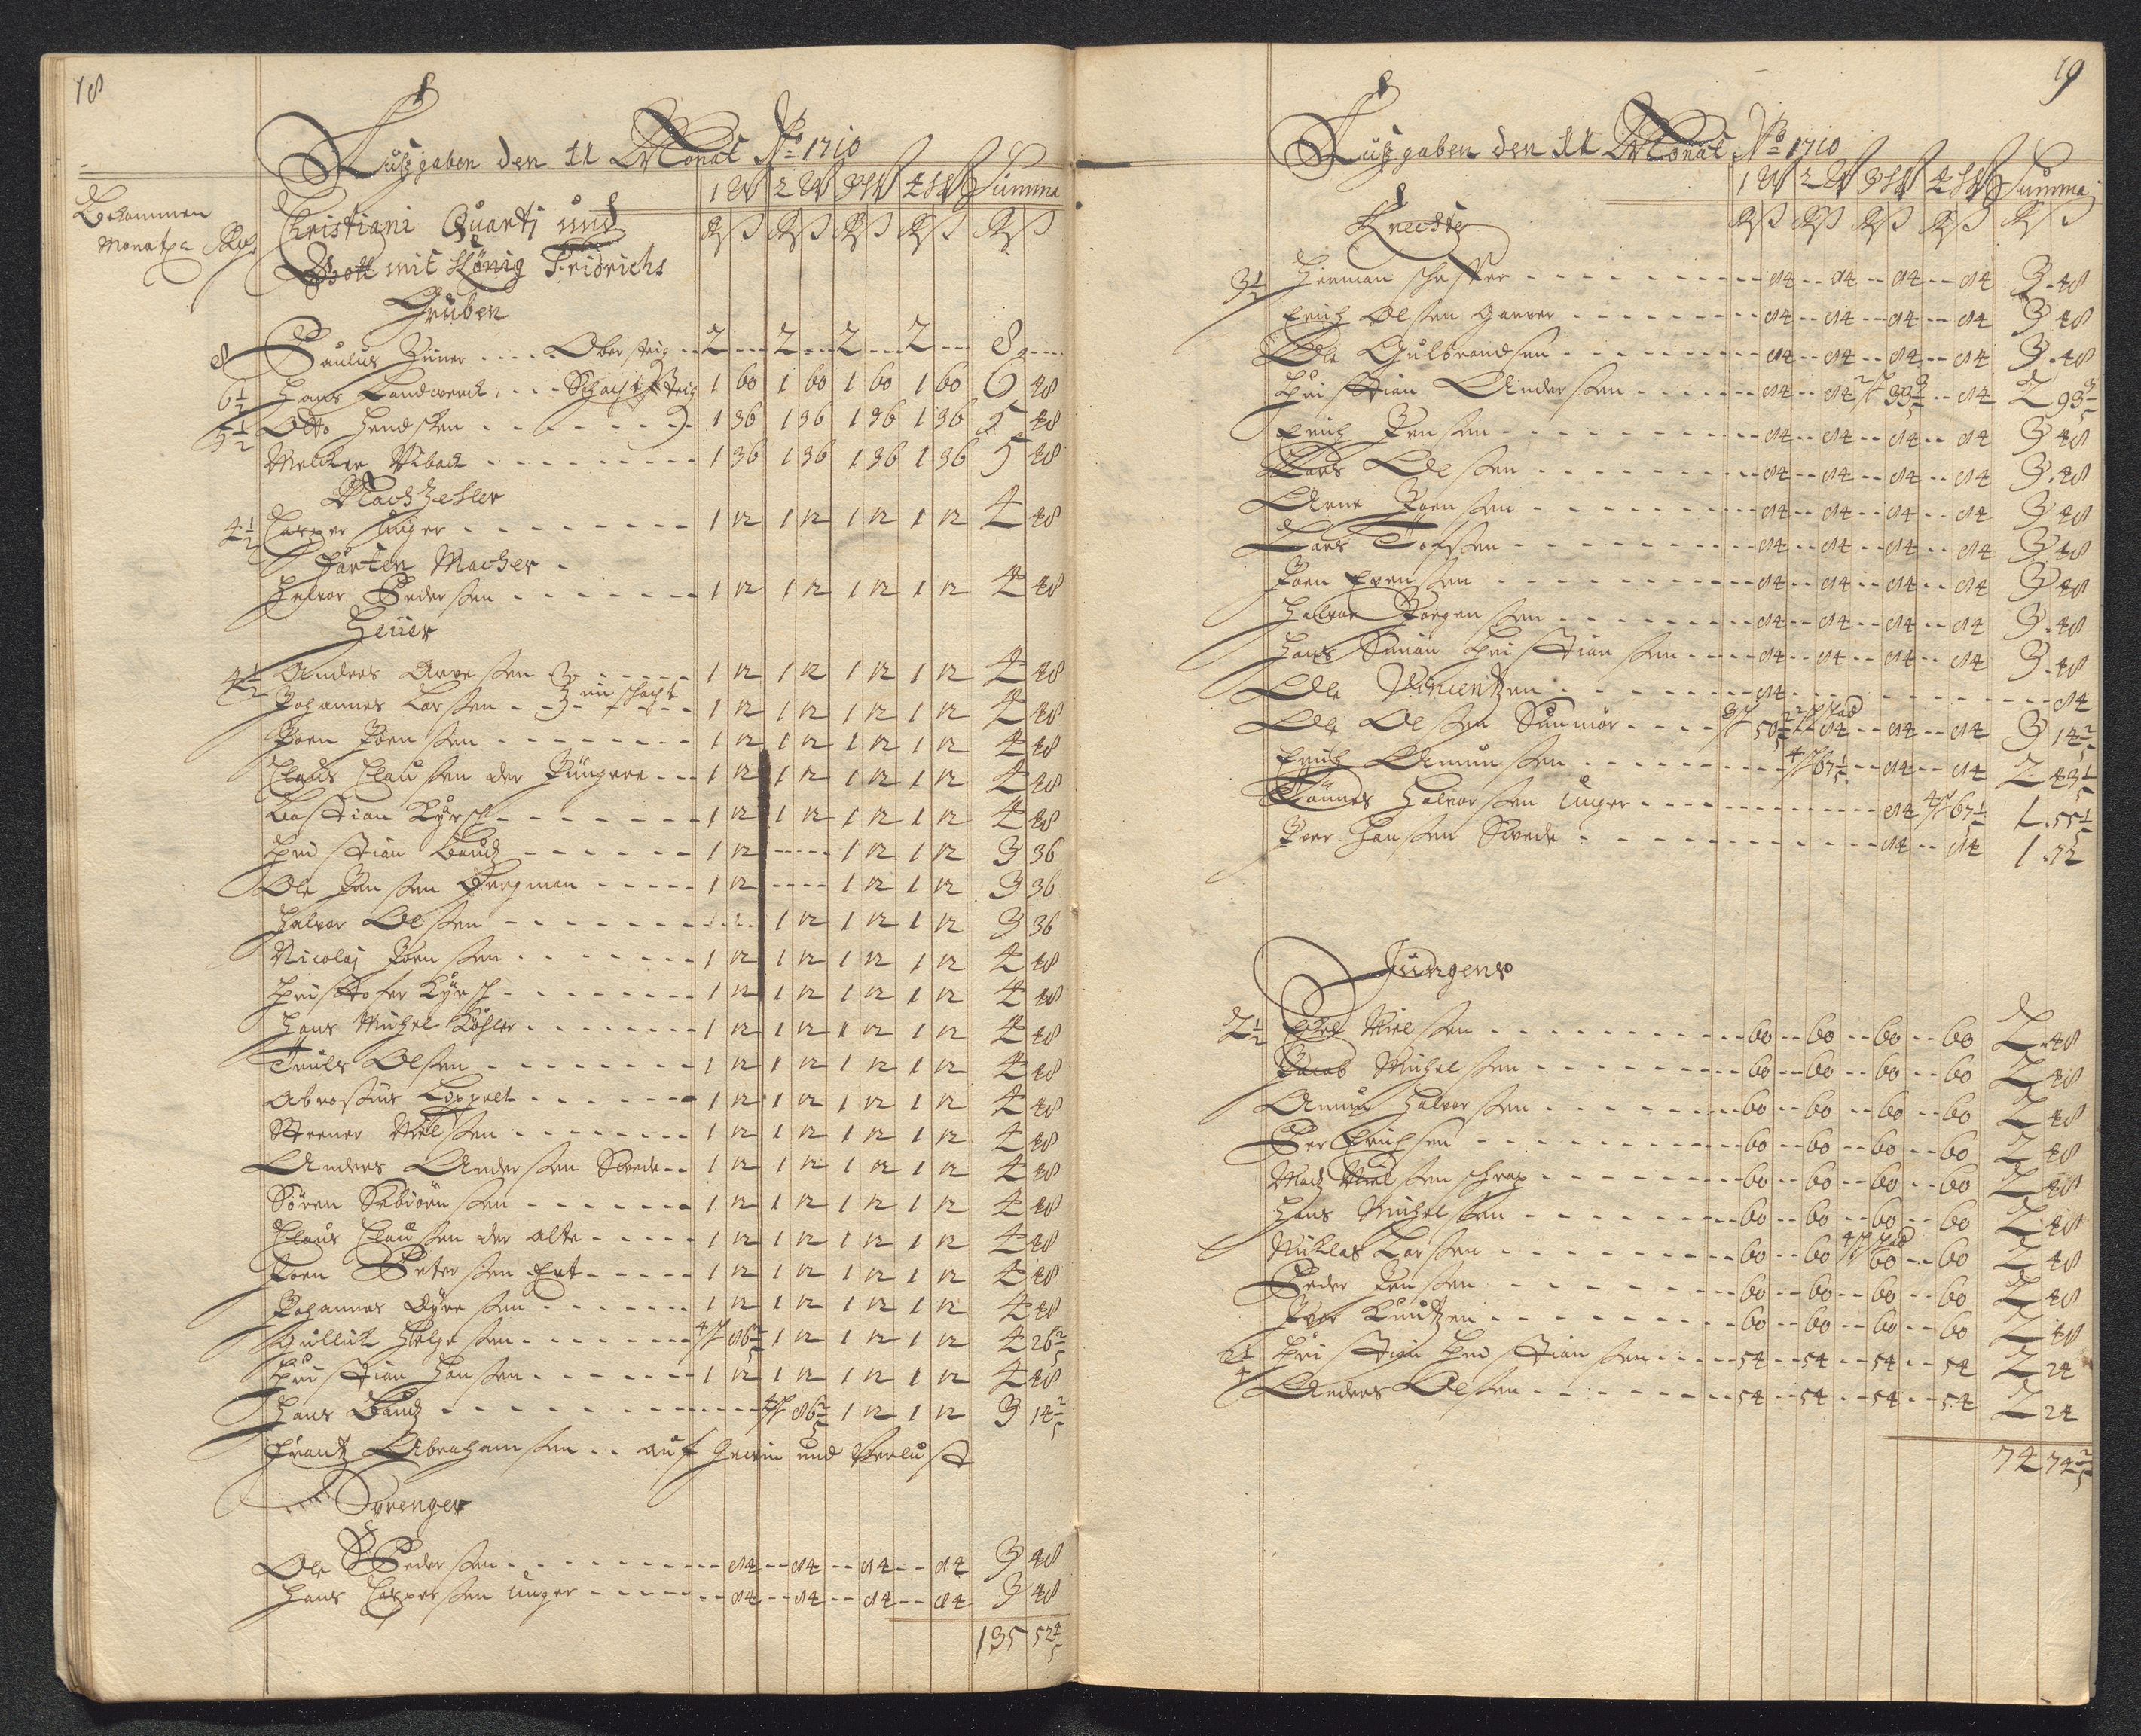 18
Auszgaben den 11 Monat No 1710
Bekommen
Monatz
1 W 2 W 3 W 4 W Summa
Christiani Quarti und
Gott mit König Fridrichs
Gruben
8 Paulus Ziener ..... Obersteig .. 2 --- 2 --- 2 --- 2 --- 8 ----
6 1/2 Hans Landwerck ... Schachtsteig 1 60 1 60 1 60 1 60 6 48
5 1/2 Otto Hendschen ....... 1 36 1 36 1 36 1 36 5 48
Melcher Vibach ........ 1 36 1 36 1 36 1 36 5 48
Nachzehler
4 1/2 Casper Unger ........ 1 12 1 12 1 12 1 12 4 48
Karten Macher
Halvor Pedersen ....... 1 12 1 12 1 12 1 12 4 48
Heuer
4 1/2 Anders Arvesen ..... 1 12 1 12 1 12 1 12 4 48
Johannes Larsen .. im schacht 1 12 1 12 1 12 1 12 4 48
Joen Joensen ........ 1 12 1 12 1 12 1 12 4 48
Claus Clausen der Jüngere --- 1 12 1 12 1 12 1 12 4 48
Bastian Kyrsch ------- 1 12 1 12 1 12 1 12 4 48
Christian Bendz ------ 1 12 ----- 1 12 1 12 3 36
Ole Jensen Bergman ----- 1 12 ---- 1 12 1 12 3 36
Halvor Olsen -------- 1 12 1 12 1 12 3 36
Nicolaj Joensen ....... 1 12 1 12 1 12 1 12 4 48
Christofer Kyrsch ....... 1 12 1 12 1 12 1 12 4 48
Hans Michel Köhler ....... 1 12 1 12 1 12 1 12 4 48
Truls Olsen ........ 1 12 1 12 1 12 1 12 4 48
Abrosius Loppelt ...... 1 12 1 12 1 12 1 12 4 48
Steener Nielsen ....... 1 12 1 12 1 12 1 12 4 48
Anders Andersen Swede .. 1 12 1 12 1 12 1 12 4 48
Sören Sebiörnsen ...... 1 12 1 12 1 12 1 12 4 48
Claus Clausen der alte ..... 1 12 1 12 1 12 1 12 4 48
Joen Petersen Ert ..... 1 12 1 12 1 12 1 12 4 48
Johannes Dyresen ....... 1 12 1 12 1 12 1 12 4 48
Gullick Helgesen ....... 4 86 2/5 1 12 1 12 1 12 4 26 2/5
Christian Hansen ....... 1 12 1 12 1 12 1 12 4 48
Hans Bendz .......... 4 86 2/5 1 12 1 12 3 14 2/5
Frantz Abrahamsen .. auf Gewin und Verlust
Sprenger
Ole Pedersen ........ 84 -- 84 -- 84 -- 84 3 48
Hans Caspersen Unger ..... 84 -- 84 -- 84 -- 84 3 48
135 52 4/5
19
Auszgaben den 11 Monat No 1710
1 W 2 W 3 W 4 W Summa
Knechte
3 1/2 Herman Scheffer ........ 84 -- 84 -- 84 -- 84 3 48
Erich Olsen Garver ........ 84 -- 84 -- 84 -- 84 3 48
Ole Gulbrandsen ........ 84 -- 84 -- 84 -- 84 3 48
Christian Andersen ...... 84 -- 84 2 33 3/5 -- 84 2 93 3/5
Erich Jensen ......... 84 -- 84 -- 84 -- 84 3 48
Lars Olsen ......... 84 -- 84 -- 84 -- 84 3 48
Arne Joensen ......... 84 -- 84 -- 84 -- 84 3 48
Lars Tofsen ......... 84 -- 84 -- 84 -- 84 3 48
Joen Evensen ......... 84 -- 84 -- 84 -- 84 3 48
Halvor Jörgensen ........ 84 -- 84 -- 84 -- 84 3 48
Hans Simon Christiansen .... 84 -- 84 -- 84 -- 84 3 48
Ole Vincentzen ........ 84 ......... 84
Ole Olsen Sunmör .... 3 50 2/5 84 -- 84 -- 84 3 14 2/5
Erich Amunsen ......... 4 67 1/5 -- 84 -- 84 2 43 1/5
Tönnes Halvorsen Unger ........... 84 4 67 1/5 1 55 1/5
Iver Hansen Swede ............. 84 -- 84 1 72
Jungens
2 1/2 Nielsen ......... 60 -- 60 -- 60 -- 60 2 48
Jacob Michelsen ........ 60 -- 60 -- 60 -- 60 2 48
Amun Halvorsen ........ 60 -- 60 -- 60 -- 60 2 48
Per Erichsen ......... 60 -- 60 -- 60 -- 60 2 48
Madz Nielsen ........ 60 -- 60 -- 60 -- 60 2 48
Hans Michelsen ........ 60 -- 60 -- 60 -- 60 2 48
Nicklas Larsen ........ 60 -- 60 4 60 -- 60 2 48
Peder Jensen ........ 60 -- 60 -- 60 -- 60 2 48
Iver Knutzen ......... 60 -- 60 -- 60 -- 60 2 48
2 1/4 Christian Christiansen ..... 54 -- 54 -- 54 -- 54 2 24
Anders Olsen ........ 54 -- 54 -- 54 -- 54 2 24
74 74 2/5